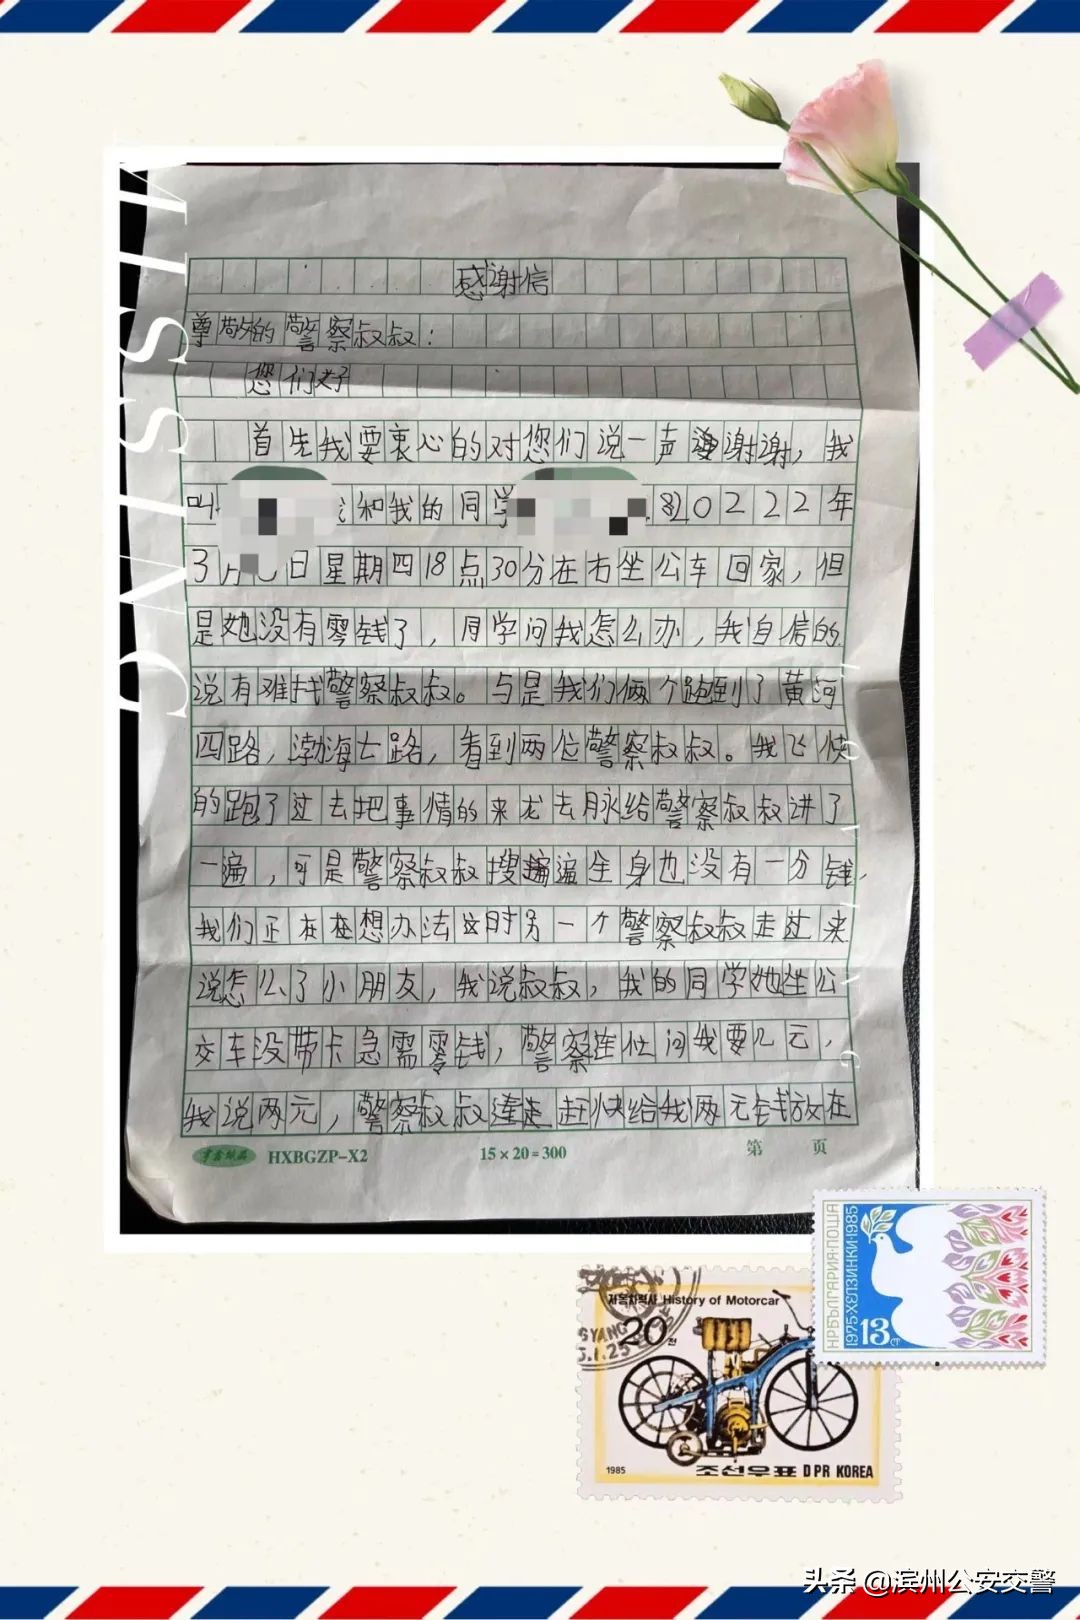 MISSING
感谢信
尊敬的警察叔叔：
您们好
首先我要衷心的对您们说一声谢谢，我
叫 我和我的同学 20222年
3月 日星期四18点30分在右坐公车回家，但
是她没有零钱了，同学问我怎么办，我自信的
说有难找警察叔叔。与是我们俩个跑到了黄河
四路，渤海七路，看到两位警察叔叔。我飞快
的跑了过去把事情的来龙去脉给警察叔叔讲了
一遍，可是警察叔叔搜遍全身也没有一分钱，
我们正在在想办法这时另一个警察叔叔走过来
说怎么了小朋友，我说叔叔，我的同学她坐公
交车没带卡急需零钱，警察连忙问我要几元，
我说两元，警察叔叔赶快给我两元钱放在
HXBGZP-X2 15×20=300 第 页
НР БЪЛГАРИЯ·ПОЩА
1975·ХЕЛЗИНКИ·1985
13 СТ
자동차력사 History of Motorcar
20 전
1985 조선우표 DPR KOREA
头条 @滨州公安交警